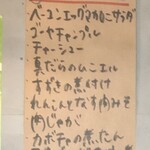 ベーコンエッグマカロニサラダ
ゴーヤチャンプル
チャーシュー
真だらのムニエル
すずきの煮付け
れんこんとなす肉みそ
肉じゃが
カボチャの煮たん